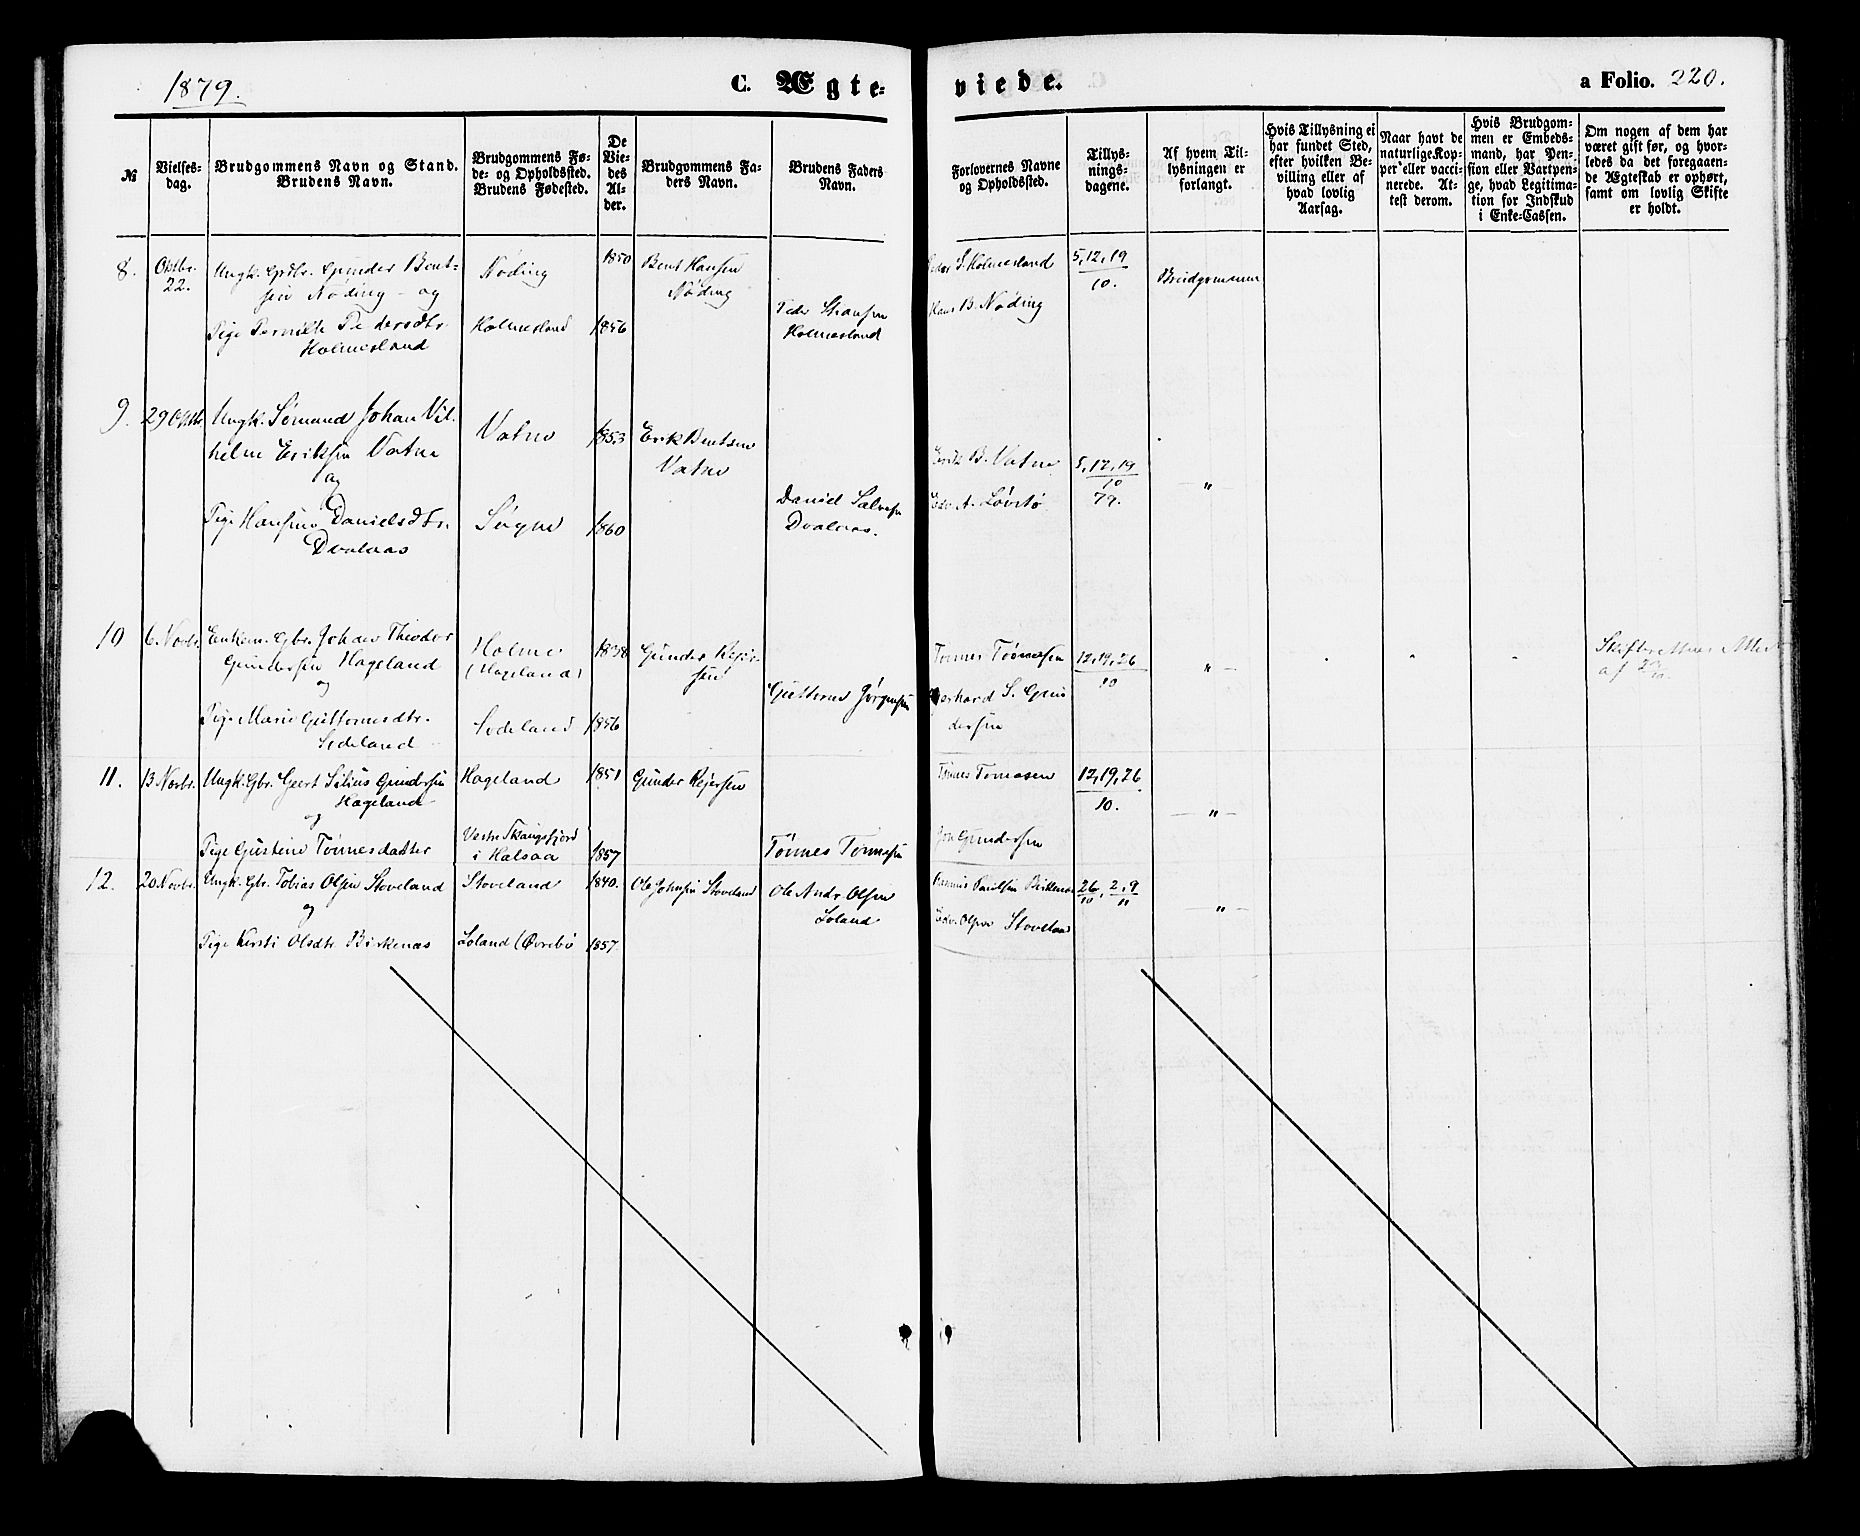 1879.
C. Ægte-
viede.
a Folio. 220.
№
Vielses-
dag.
Brudgommens Navn og Stand.
Brudens Navn.
Brudgommens Fø-
de- og Opholdssted.
Brudens Fødested.
De
Vie-
des
Al-
der.
Brudgommens Fa-
ders Navn.
Brudens Faders
Navn.
Forlovernes Navne
og Opholdssted.
Tillys-
nings-
dagene.
Af hvem Til-
lysningen er
forlangt.
Hvis Tillysning ei
har fundet Sted,
efter hvilken Be-
villing eller af
hvad lovlig
Aarsag.
Naar havt de
naturlige Kop-
per eller vacci-
nerede. At-
test derom.
Hvis Brudgom-
men er Embeds-
mand, har Pen-
sion eller Vartpen-
ge, hvad Legitima-
tion for Indskud
i Enke-Cassen.
Om nogen af dem har
været gift før, og hvor-
ledes da det foregaaen-
de Ægteskab er ophørt,
samt om lovlig Skifte
er holdt.
8.
Oktbr.
22.
Ungk. Gbr. Gunder Bent-
sen Nøding - og
Pige Pernille Pedersdtr.
Holmesland
Nøding
Holmesland
1850
1856
Bent Hansen
Nøding
Peder Stiansen
Holmesland
Peder S. Holmesland
Hans B. Nøding
5, 12, 19
10.
Brudgommen
9.
29 Oktbr.
Ungk. Sømand Johan Vil-
helm Eriksen Vatne
og
Pige Hansine Danielsdtr.
Dvalaas
Vatne
Søgne
1853
1860
Erik Bentsen
Vatne
Daniel Salvesen
Dvalaas.
Erik B. Vatne
Edv. A. Løvstø
5, 12, 19
10
79.
- " -
10
6. Novbr.
Enkem. Gbr. Johan Theodor
Gundersen Hageland
og
Pige Marie Guttormsdtr.
Sodeland
Holme
(Hageland)
Sodeland
1838
1856
Gunder Rejer-
sen
Guttorm Jørgensen
Tønnes Tønnesen
Gerhard S. Gun-
dersen
12, 19, 26
10
" -
Skifterettens Attest
af
11.
13 Novbr.
Ungk. Gbr. Geert Silius Gundersen
Hageland
og
Pige Gustine Tønnesdatter
Hageland
Vestre Skaugsfjord
i Halsaa
1851
1857
Gunder Rejersen
Tønnes Tønnesen
Tønnes Tønnesen
Gundersen
12, 19, 26
10.
- " -
12.
20 Novbr.
Ungk. Gbr. Tobias Olsen Stoveland
og
Pige Kersti Olsdtr. Birkenæs
Stoveland
Loland (Øvrebø
1840.
1857.
Ole Johnsen Stoveland
Ole Andr. Olsen
Loland
Rasmus Paulsen Birkenæs
Edv. Olsen Stoveland
26, 2, 9
10 11
- " -